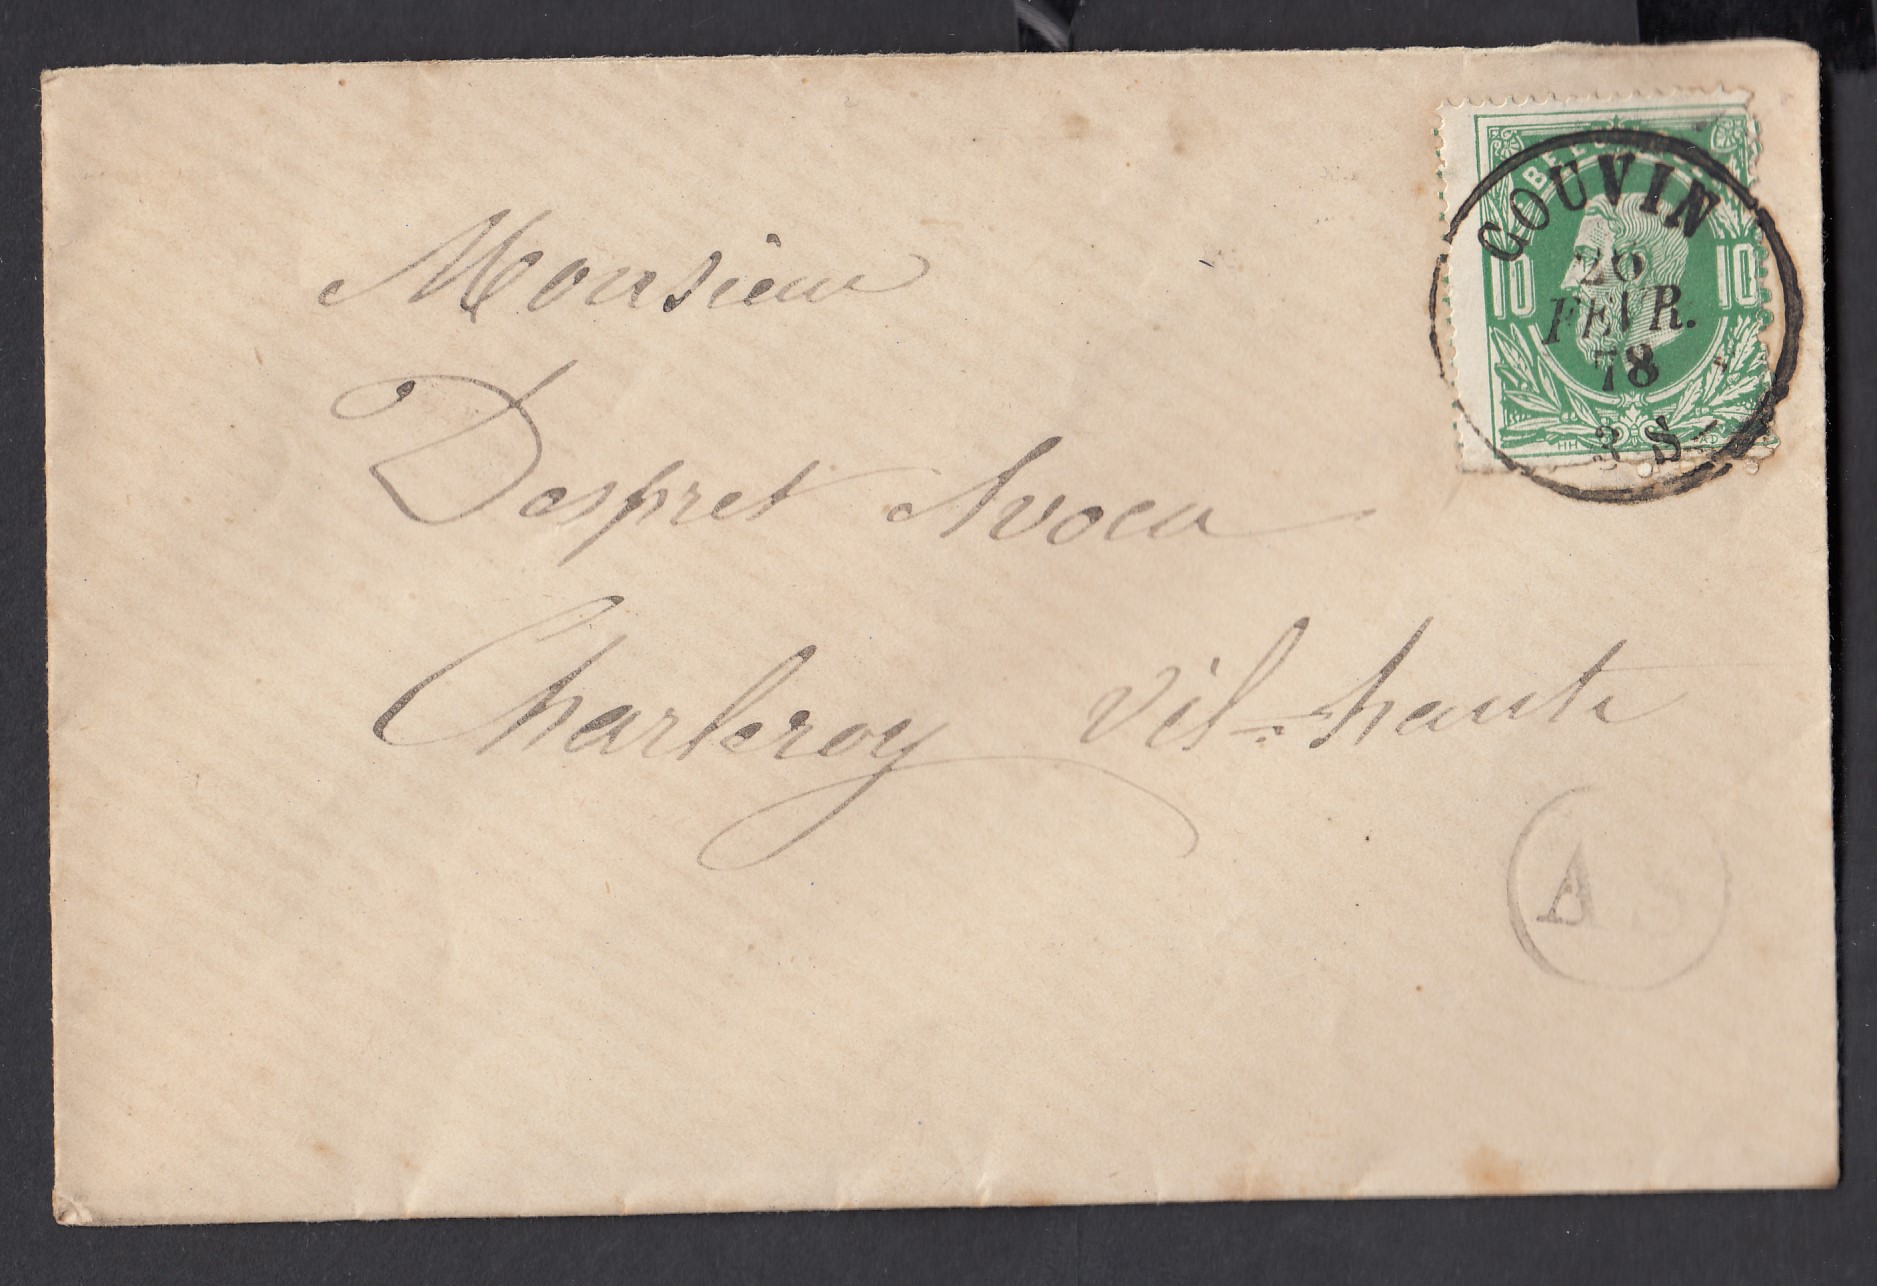 BELGIQUE
10 10
COUVIN
26
FEVR.
78
3 S
Monsieur
Despret Avoca
Charleroy Vil-haute
A S